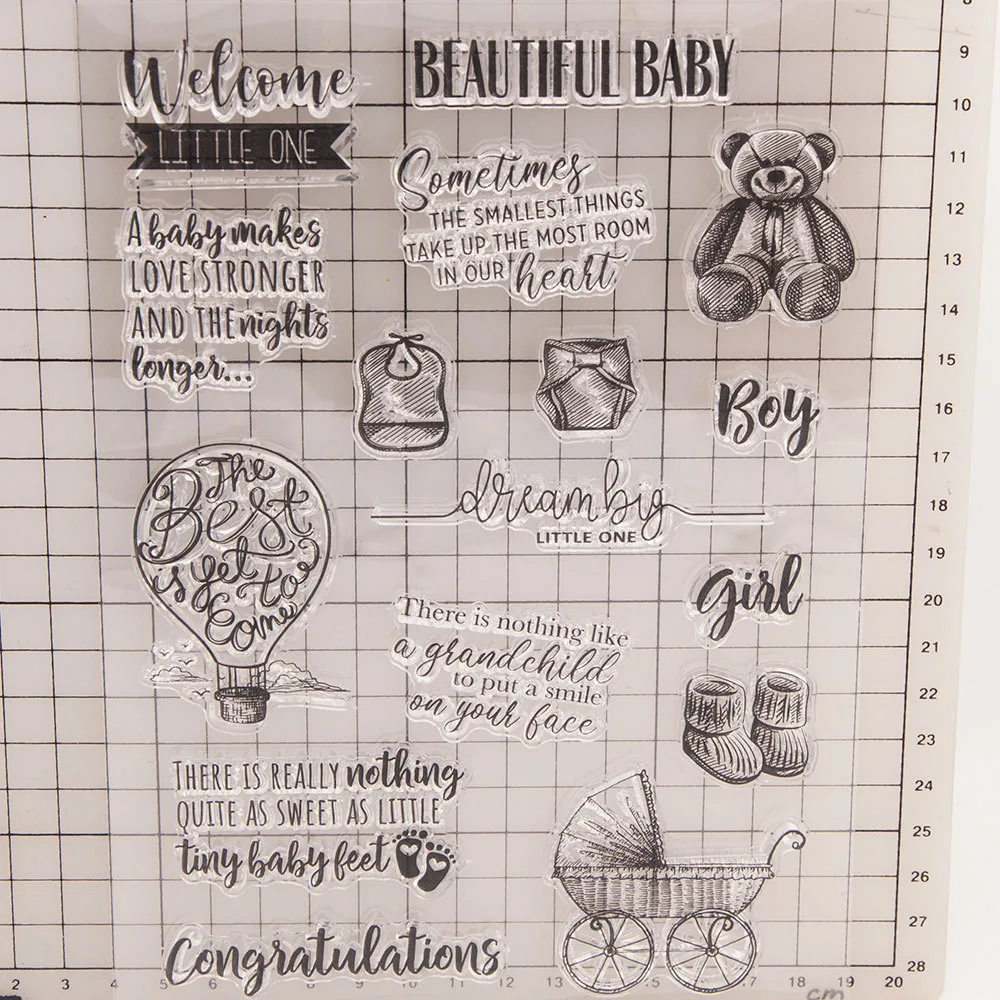 Welcome
LITTLE ONE
BEAUTIFUL BABY
Sometimes
THE SMALLEST THINGS
TAKE UP THE MOST ROOM
IN OUR heart
A baby makes
LOVE STRONGER
AND THE nights
longer...
Boy
The
Best
is yet to
Come
dream big
LITTLE ONE
girl
There is nothing like
a grandchild
to put a smile
on your face
THERE IS REALLY nothing
QUITE AS SWEET AS LITTLE
tiny baby feet
Congratulations
9
10
11
12
13
14
15
16
17
18
19
20
21
22
23
24
25
26
27
28
2 3 4 5 6 7 8 9 10 11 12 13 14 15 16 17 18 19 20
cm